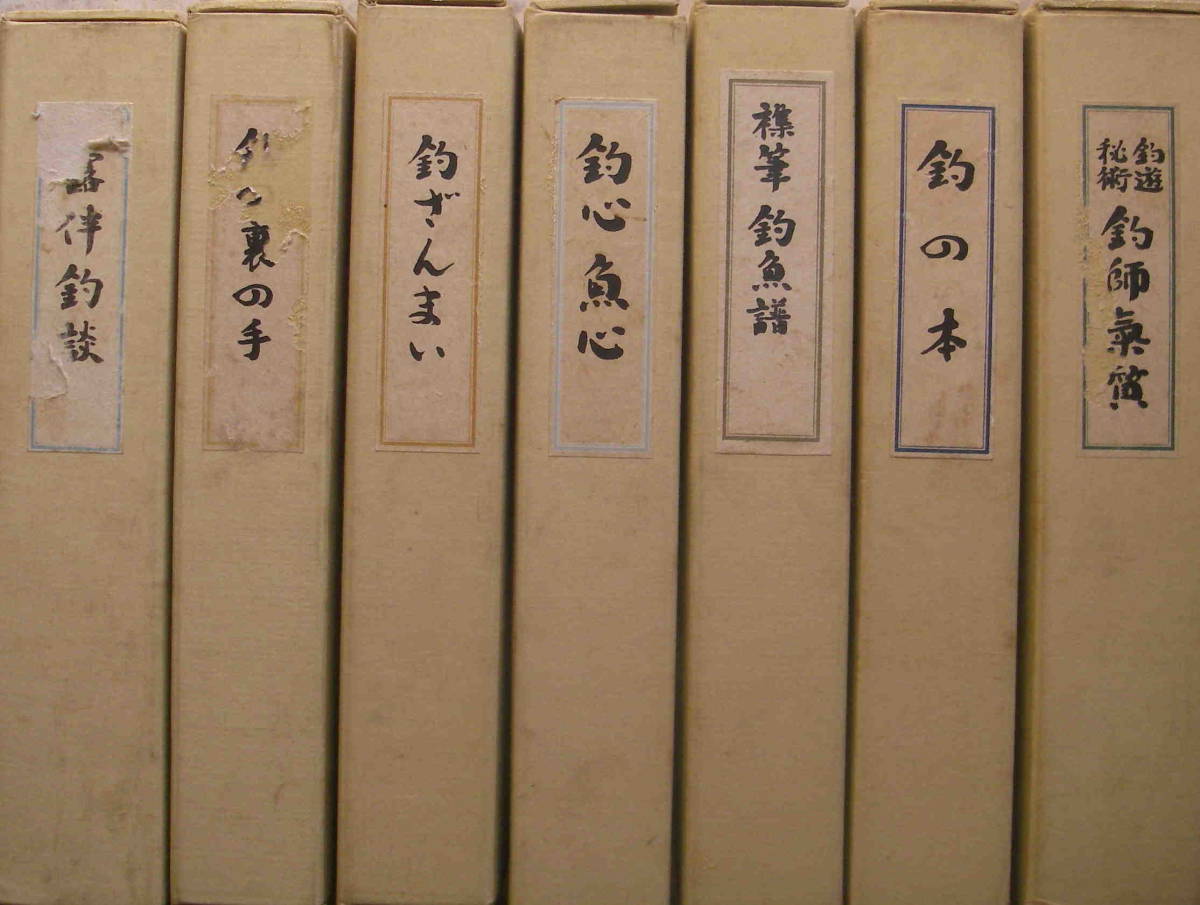 露伴釣談
釣の裏の手
釣ざんまい
釣心魚心
襍筆 釣魚譜
釣の本
釣遊秘術 釣師氣質